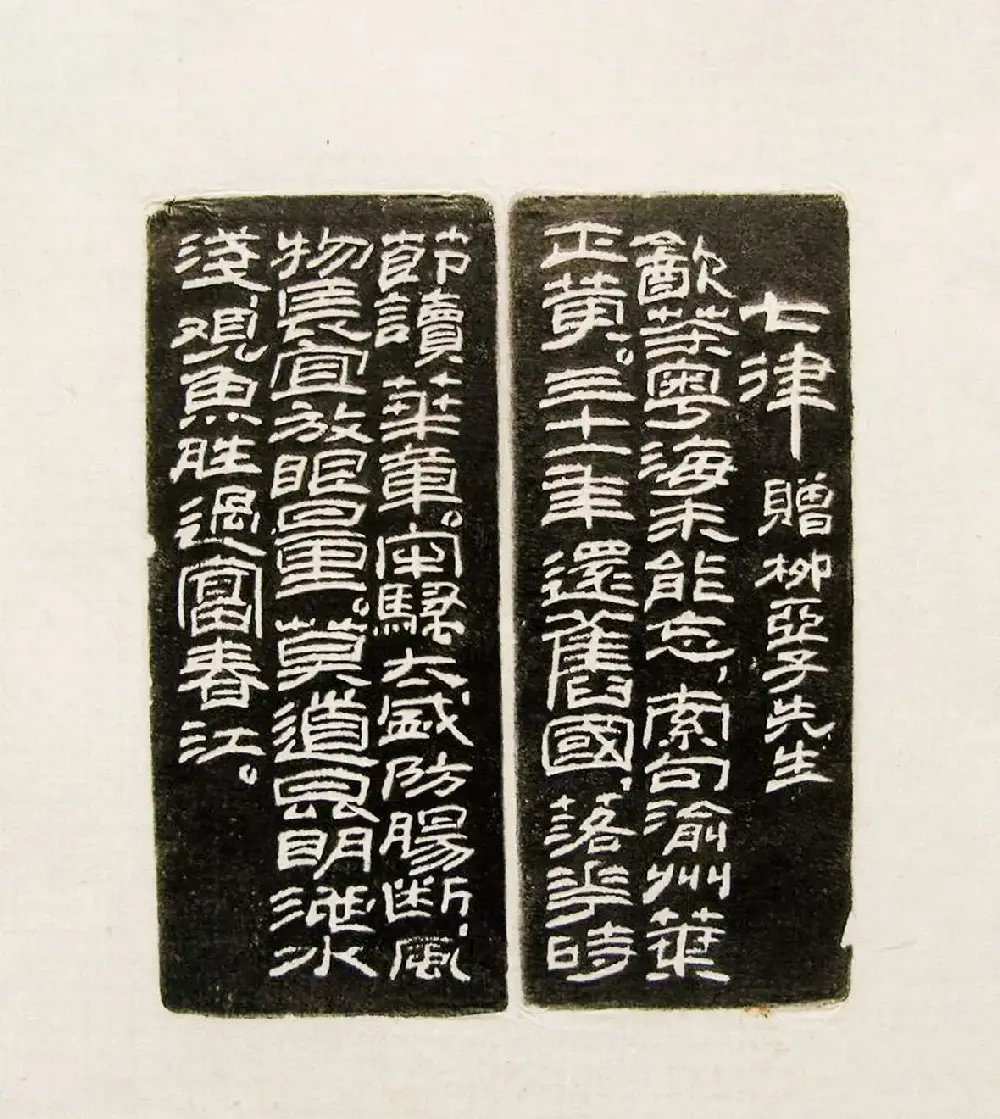 七律 贈柳亞子先生
飲茶粵海未能忘，索句渝州葉
正黄。三十一年還舊國，落花時
節讀華章。牢騷太盛防腸断，風
物長宜放眼量。莫道昆明池水
淺，观魚胜過富春江。